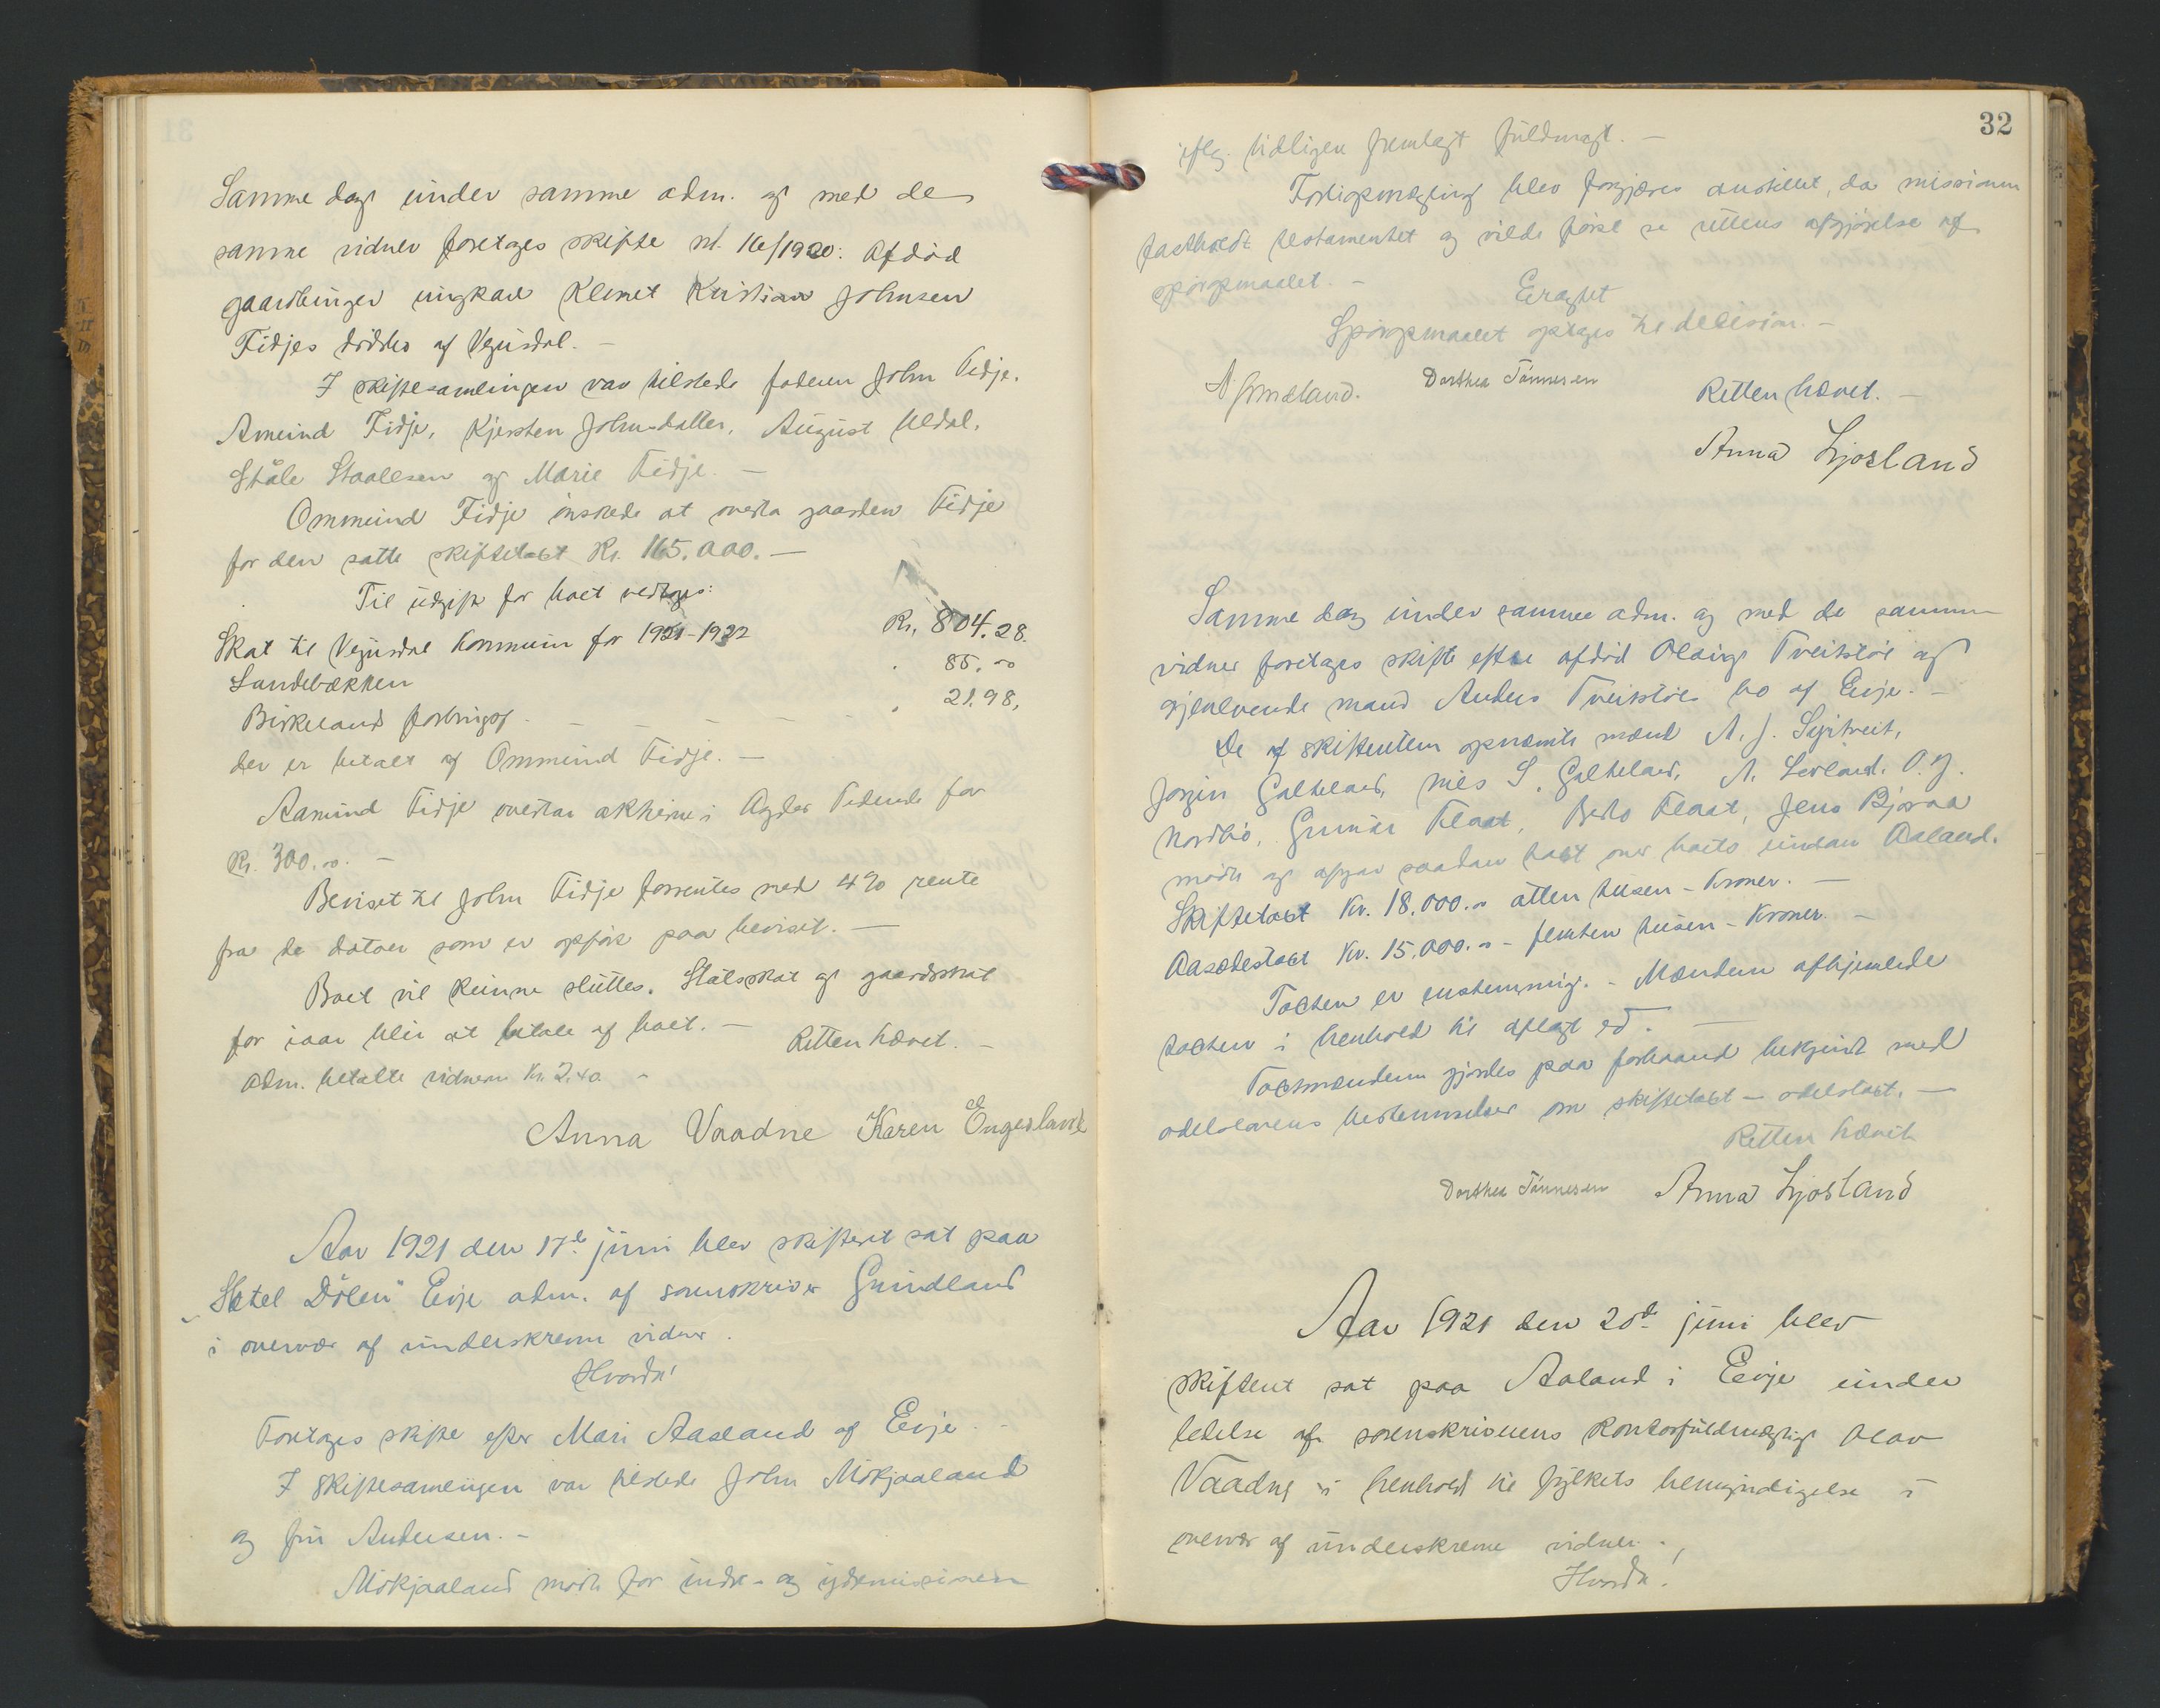 Samme dag under samme adm. og med de
samme vidner foretages skifte nr. 16/1920: Afdød
gaardbruger ungkar Klemet Kristian Johnsen
Fidjes dødsbo af Vegusdal. -
I skiftesamlingen var tilstede faderen John Fidje.
Ameind Fidje, Kjersten Johnsdatter, August Uldal.
Ståle Staalesen og Marie Fidje. -
Ommeind Fidje ønskede at overta gaarden Fidje
for den satte skiftetakst Kr. 165.000. -
Til utgift for boet vedtages:
Skat til Vegusdal Kommune for 1921-1922 Kr. 804.28.
Landebækken 85.00
Birkeland forbruksf. 21.98.
der er betalt af Ommund Fidje. -
Aamund Fidje overtar aktierne i Agder Tidende for
Kr. 300.00. -
Beviset til John Fidje forrentes med 4% rente
fra de datoer som er opført paa beviset. -
Boet vil kunne sluttes. Statsskat og gaardsskat
for iaar blir at betale af boet. -
Retten hævet. -
Adm. betalte vidnerne Kr. 2.40. -
Anna Vaadne Karen E. Engesland
Aar 1921 den 17de juni blev skifteret sat paa
"Hotel Dølen" Evje adm. af sorenskriver Grundland
i overvær af underskrevne vidner.
Hvorda!
Foretages skifte efter Mari Aasland af Evje. -
I skiftesamlingen var tilstede John Mökjaaland
og fru Andersen. -
Mökjaaland mødte for indre- og ydremissionen
32
ifølg. tidligere fremlagt fuldmagt. -
Forligsmægling blev forgjæves anstillet, da missionen
fastholdt testamentet og vilde først se rettens afgjørelse af
spørgsmaalet. -
Eragtet
Spørgsmaalet optages til decision. -
Retten hævet. -
Dorthea Tønnesen
Anna Ljosland
Samme dag under samme adm. og med de samme
vidner foretages skifte efter afdød Olaug Tveitstøl og
gjenlevende mand Anders Tveitstøls bo af Evje. -
De af skifteretten opnævnte mænd A. J. Syrtveit,
Jørgen Galteland, Nils S. Galteland, A. Lauland. O. J.
Nordbø, Gunnar Flaat, Berto Flaat, Jens Bjoraa
mødte og afgav saadan takst over boets eiendom Aaland.
Skiftetakst Kr. 18.000.00 atten tusen - Kroner. -
Aasædestakst Kr. 15.000.00 - femten tusen - Kroner. -
Taksten er enstemmig. - Mændene afhjemlede
taksten i henhold til aflagt ed. -
Takstmændene gjordes paa forhaand bekjendt med
odelslovens bestemmelser om skiftetakst - odelstakst. -
Retten hævet
Dorthea Tønnesen Anna Ljosland
Aar 1921 den 20de juni blev
skifteret sat paa Aaland i Evje under
ledelse af sorenskriverens kontorfuldmægtig Olav
Vaadne i henhold til fylkets bemyndigelse i
overvær af underskrevne vidner.
Hvorda!